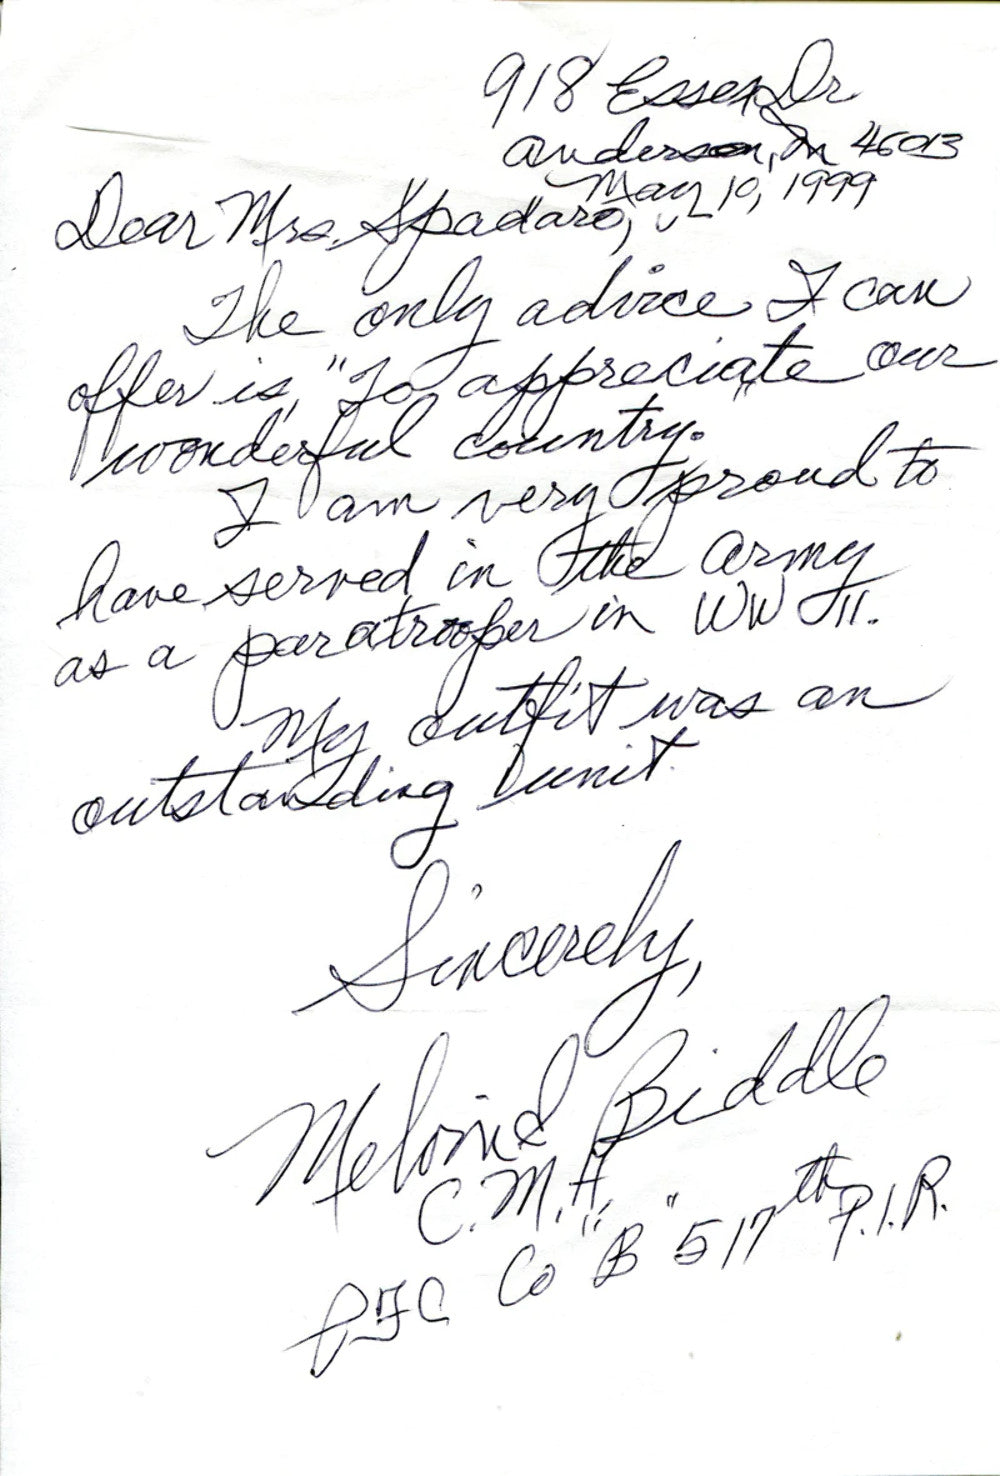 918 Essex Dr
Anderson, In 46013
May 10, 1999
Dear Mrs. Spadaro,
The only advice I can
offer is, "To appreciate our
wonderful country.
I am very proud to
have served in the army
as a paratrooper in WW II.
My outfit was an
outstanding unit.
Sincerely,
Melvin Biddle
C.M.H.
PFC Co "B" 517th P.I.R.